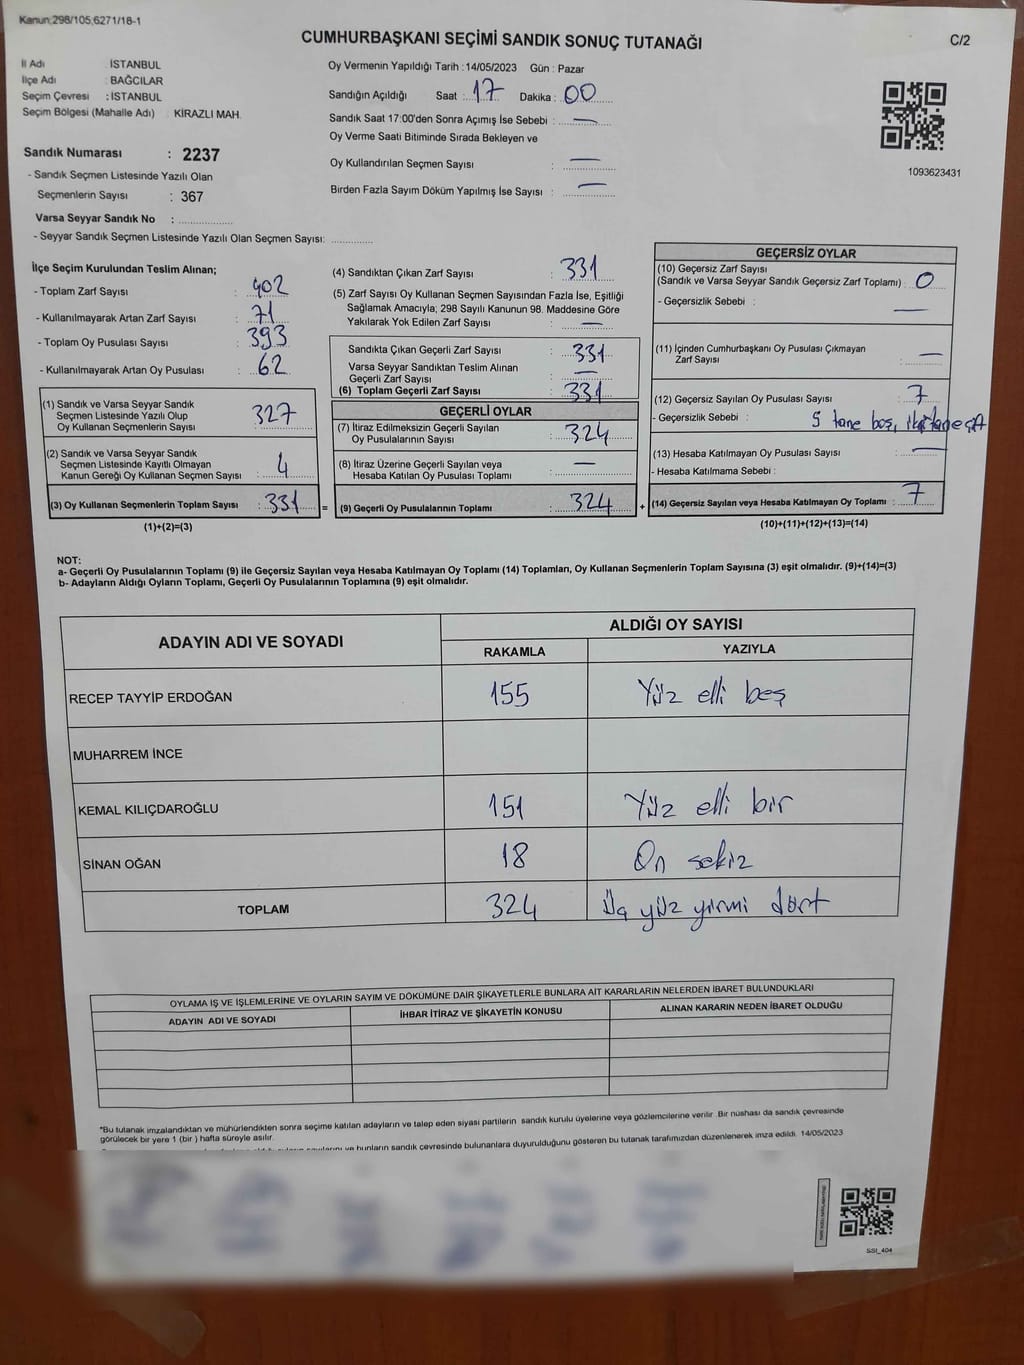 Kanun;298/105,6271/18-1
CUMHURBAŞKANI SEÇİMİ SANDIK SONUÇ TUTANAĞI
C/2
İl Adı : İSTANBUL
İlçe Adı : BAĞCILAR
Seçim Çevresi : İSTANBUL
Seçim Bölgesi (Mahalle Adı) : KİRAZLI MAH.
Sandık Numarası : 2237
- Sandık Seçmen Listesinde Yazılı Olan
Seçmenlerin Sayısı : 367
Varsa Seyyar Sandık No :
- Seyyar Sandık Seçmen Listesinde Yazılı Olan Seçmen Sayısı:
Oy Vermenin Yapıldığı Tarih :14/05/2023 Gün : Pazar
Sandığın Açıldığı Saat : 17 Dakika : 00
Sandık Saat 17:00'den Sonra Açımış İse Sebebi : —
Oy Verme Saati Bitiminde Sırada Bekleyen ve
Oy Kullandırılan Seçmen Sayısı : —
Birden Fazla Sayım Döküm Yapılmış İse Sayısı : —
1093623431
İlçe Seçim Kurulundan Teslim Alınan;
- Toplam Zarf Sayısı : 402
- Kullanılmayarak Artan Zarf Sayısı : 71
- Toplam Oy Pusulası Sayısı : 393
- Kullanılmayarak Artan Oy Pusulası : 62
(1) Sandık ve Varsa Seyyar Sandık
Seçmen Listesinde Yazılı Olup
Oy Kullanan Seçmenlerin Sayısı : 327
(2) Sandık ve Varsa Seyyar Sandık
Seçmen Listesinde Kayıtlı Olmayan
Kanun Gereği Oy Kullanan Seçmen Sayısı : 4
(3) Oy Kullanan Seçmenlerin Toplam Sayısı : 331 =
(1)+(2)=(3)
(4) Sandıktan Çıkan Zarf Sayısı : 331
(5) Zarf Sayısı Oy Kullanan Seçmen Sayısından Fazla İse, Eşitliği
Sağlamak Amacıyla; 298 Sayılı Kanunun 98. Maddesine Göre
Yakılarak Yok Edilen Zarf Sayısı : —
Sandıkta Çıkan Geçerli Zarf Sayısı : 331
Varsa Seyyar Sandıktan Teslim Alınan
Geçerli Zarf Sayısı : —
(6) Toplam Geçerli Zarf Sayısı : 331
GEÇERLİ OYLAR
(7) İtiraz Edilmeksizin Geçerli Sayılan
Oy Pusulalarının Sayısı : 324
(8) İtiraz Üzerine Geçerli Sayılan veya
Hesaba Katılan Oy Pusulası Toplamı : —
(9) Geçerli Oy Pusulalarının Toplamı : 324 +
GEÇERSİZ OYLAR
(10) Geçersiz Zarf Sayısı
(Sandık ve Varsa Seyyar Sandık Geçersiz Zarf Toplamı) : 0
- Geçersizlik Sebebi : —
(11) İçinden Cumhurbaşkanı Oy Pusulası Çıkmayan
Zarf Sayısı : —
(12) Geçersiz Sayılan Oy Pusulası Sayısı : 7
- Geçersizlik Sebebi : 5 tane boş, iki tane çift
(13) Hesaba Katılmayan Oy Pusulası Sayısı : —
- Hesaba Katılmama Sebebi :
(14) Geçersiz Sayılan veya Hesaba Katılmayan Oy Toplamı : 7
(10)+(11)+(12)+(13)=(14)
NOT:
a- Geçerli Oy Pusulalarının Toplamı (9) ile Geçersiz Sayılan veya Hesaba Katılmayan Oy Toplamı (14) Toplamları, Oy Kullanan Seçmenlerin Toplam Sayısına (3) eşit olmalıdır. (9)+(14)=(3)
b- Adayların Aldığı Oyların Toplamı, Geçerli Oy Pusulalarının Toplamına (9) eşit olmalıdır.
ADAYIN ADI VE SOYADI ALDIĞI OY SAYISI
RAKAMLA YAZIYLA
RECEP TAYYİP ERDOĞAN 155 Yüz elli beş
MUHARREM İNCE
KEMAL KILIÇDAROĞLU 151 Yüz elli bir
SİNAN OĞAN 18 On sekiz
TOPLAM 324 Üç yüz yirmi dört
OYLAMA İŞ VE İŞLEMLERİNE VE OYLARIN SAYIM VE DÖKÜMÜNE DAİR ŞİKAYETLERLE BUNLARA AİT KARARLARIN NELERDEN İBARET BULUNDUKLARI
ADAYIN ADI VE SOYADI İHBAR İTİRAZ VE ŞİKAYETİN KONUSU ALINAN KARARIN NEDEN İBARET OLDUĞU
*Bu tutanak imzalandıktan ve mühürlendikten sonra seçime katılan adayların ve talep eden siyasi partilerin sandık kurulu üyelerine veya gözlemcilerine verilir. Bir nüshası da sandık çevresinde
görülecek bir yere 1 (bir ) hafta süreyle asılır.
bunların sandık çevresinde bulunanlara duyurulduğunu gösteren bu tutanak tarafımızdan düzenlenerek imza edildi. 14/05/2023
SSI_404